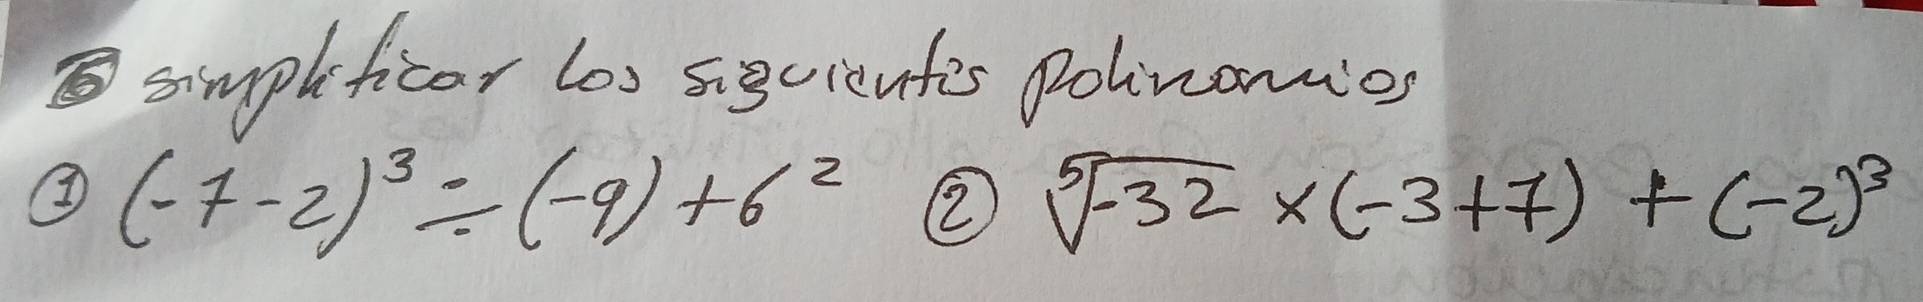 ⑥ simplificar los siguientes polinomios
① (-7-2)³ ÷ (-9) + 6² ② ⁵√-32 × (-3+7) + (-2)³